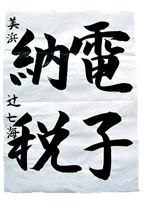 電子
納税
美浜 辻七海